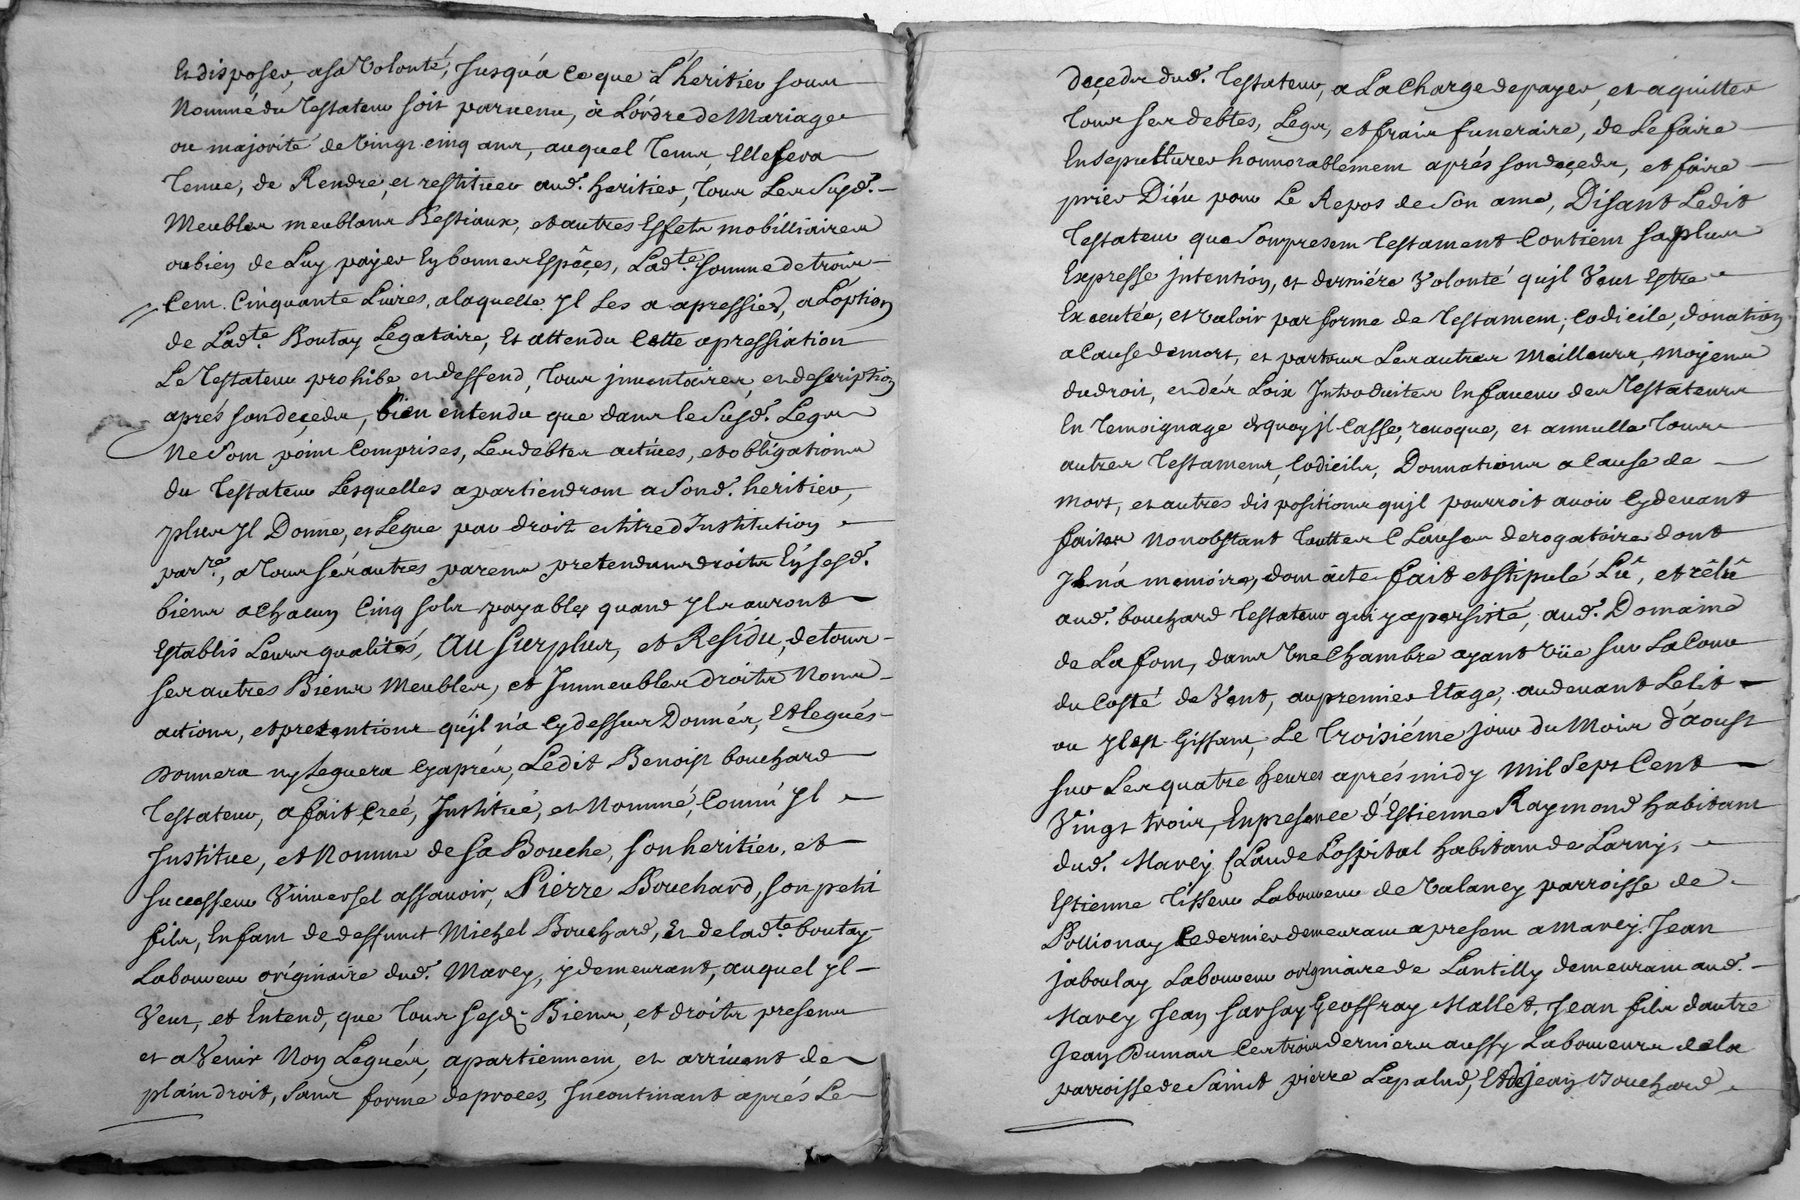 Et disposer, a sa Volonté, Jusqu'a ce que L'heritier sous
Nommé du Testateur soit parvenu, à L'ordre de Mariage
ou majorité de vingt cinq ans, auquel Tems Elle sera
Tenue, de Rendre, et restituer aud. heritier, Tous Les Susd.
Meubles meublans Bestiaux, et autres Effets mobilliaires
oubien de Luy payer En bonnes Espéces, Ladte. somme de trois
Cent Cinquante Livres, a laquelle Jl Les a apressiés, a Loption
de Ladte. Boutay Legataire, Et attendu Cette apressiation
Le Testateur prohibe, et deffend, Tous jnventaires, et description
aprés son deçeds, bien entendu que dans le Susd. Legs
Ne Sont point Comprises, Les debtes actives, et obligations
du Testateur Lesquelles apartiendront a Sond. heritier,
plus Jl Donne, et Legue par droit et titre d'Institution
parre., a Tous ses autres parens pretendans droits En sesd.
biens a Chacun Cinq sols payables quand Jls auront
Establis Leurs qualités, Au Surplus, et Residu, de tous
ses autres Biens Meubles, et Jmmeubles droits Noms
actions, et pretentions qu'jl n'a Cy dessus Donnés, Et legués
donnera ny Leguera Cyaprés, Ledit Benoist bouchard
Testateur, a fait, Creé, Jnstitué, et Nommé, Comm' Jl
Jnstitue, et Nomme de sa Bouche, son heritier, et
successeur Vniversel assavoir, Pierre Bouchard, son petit
fils, Enfant de deffunct Michel Bouchard, Et de ladte. boutay
Laboureur originaire dud. Marcy, y demeurant, auquel Jl
Veut, et Entend, que Tous sesd. Biens, et droits presens
et a Venir Non Legués, apartiennent, et arrivent de
plain droit, Sans forme de proces, Jncontinant aprés Le
deçeds dud. Testateur, a La Charge de payer, et aquitter
Tous ses debtes, Legs, et frais funeraire, de Le faire
Ensepulturer honnorablement aprés son deçeds, et faire
prier Diéu pour Le Repos de Son ame, Disant Ledit
Testateur que Son present Testament Contient sa plus
Expresse jntention, et derniére Volonté qu'jl Veut Estre
Executée, et valoir par forme de Testament, Codicile, donation
a Cause de mort, et par tous Les autres Meilleurs, Moyens
du droit, et dés Loix Jntroduites En faveur des Testateurs
En Temoignage dequoy jl Casse, revoque, et annulle Tous
autres Testamens, Codicils, Donnations a Cause de
mort, et autres dispositions qu'jl pourroit avoir Cy devant
faites Nonobstant Touttes Clauses derogatoires dont
Jl n'a memoire, dont acte fait et stipulé Lû, et rêlû
aud. bouchard Testateur qui y a persisté, aud. Domaine
de Lafont, dans Vne Chambre ayant Vüe sur La Cour
du Costé de Vent, au premier Etage, audevant Le lit
ou Jl est Gissant, Le Troisiéme jour du Mois d'aoust
sur Les quatre heures aprés midy Mil Sept Cent
Vingt trois, En presence d'Estienne Raymond habitant
dud. Marcy Claude Lospital habitant de Larny,
Estienne Tisseur Laboureur de Valancy parroisse de
Pollionay Ce dernier demeurant a present a Marcy. Jean
jaboulay Laboureur originaire de Lantilly demeurant aud.
Marcy Jean Sarsay Geoffray Mallet, Jean fils d'autre
Jean Dumas Ces trois derniers aussy Laboureurs de la
parroisse de Sainct pierre Lapalud, Et de Jean Bouchard